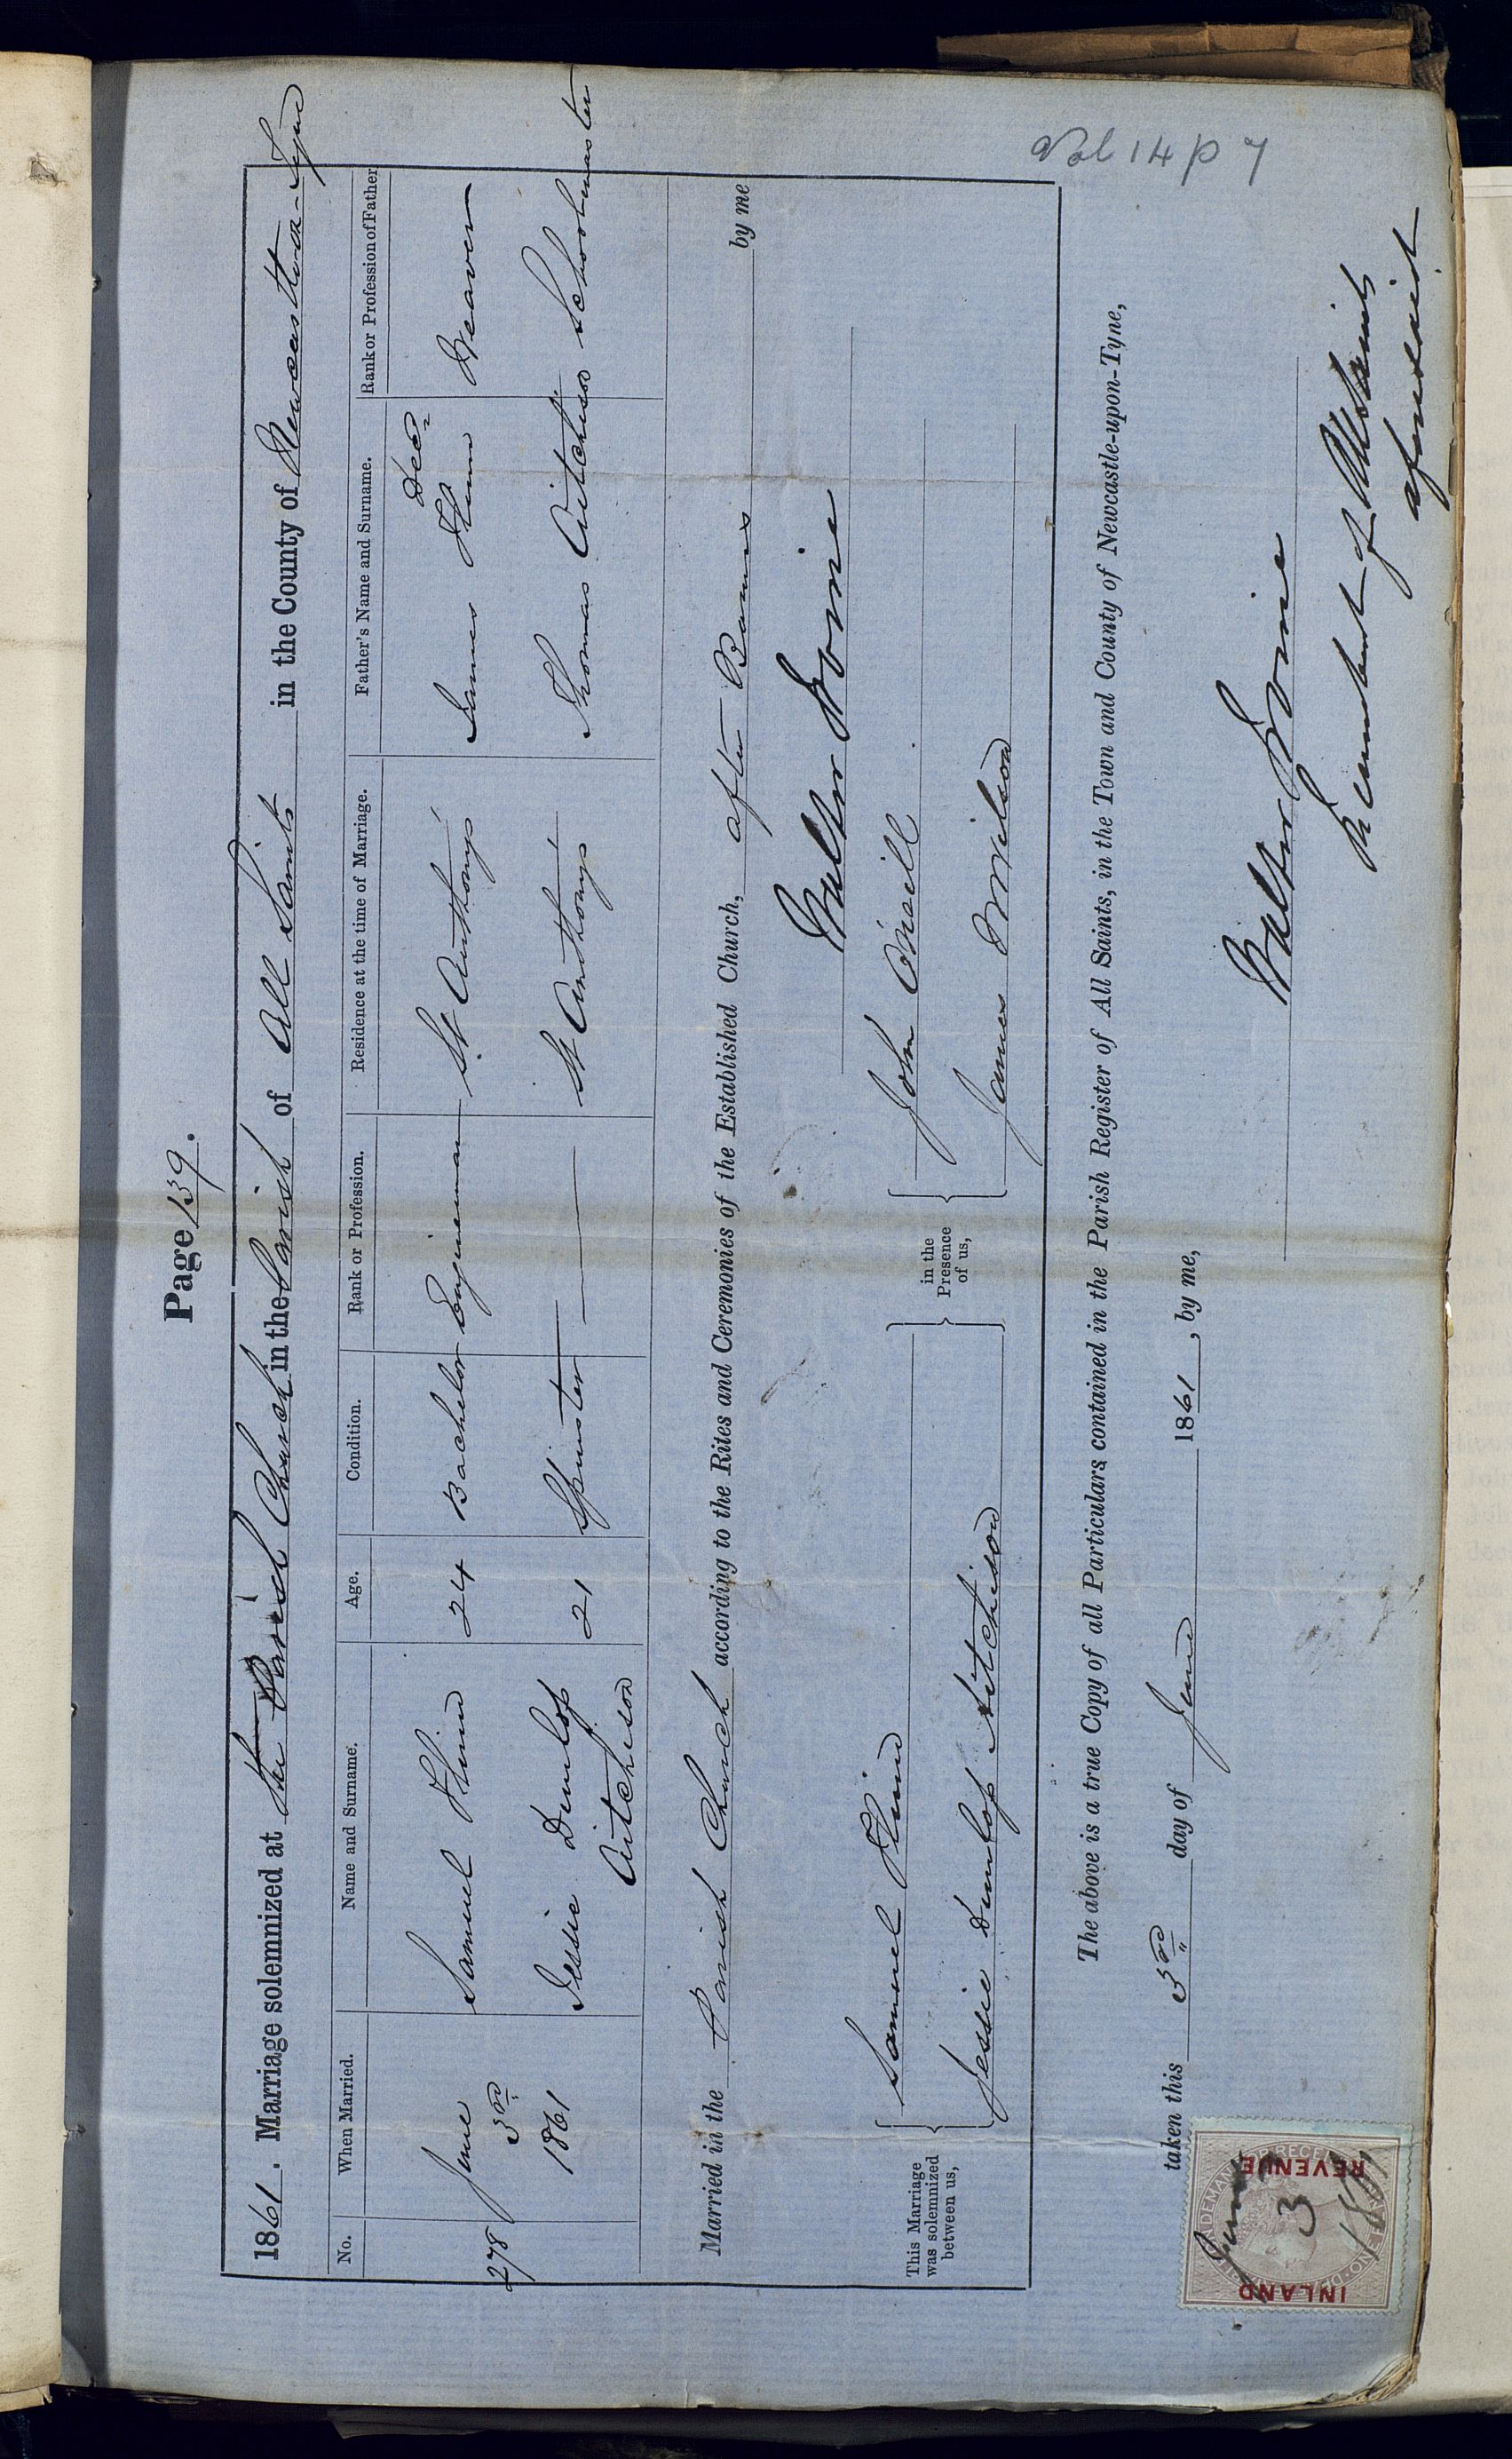 Page 139.
1861. Marriage solemnized at the Parish Church in the Parish of All Saints in the County of Newcastle-on-Tyne
No. When Married. Name and Surname. Age. Condition. Rank or Profession. Residence at the time of Marriage. Father's Name and Surname. Rank or Profession of Father
278 June 3rd 1861 Samuel 24 Bachelor Engineman St Anthony's James Decd Weaver
Jessie Dunlop Aitchison 21 Spinster St Anthony's Thomas Aitchison Schoolmaster
Married in the Parish Church according to the Rites and Ceremonies of the Established Church, after Banns by me
Walter Irvine
This Marriage was solemnized between us,
Samuel
Jessie Dunlop Aitchison
in the Presence of us,
John O'Neill
James Wilson
The above is a true Copy of all Particulars contained in the Parish Register of All Saints, in the Town and County of Newcastle-upon-Tyne,
taken this 3rd day of June 1861, by me,
Walter Irvine
Incumbent of All Saints
aforesaid
INLAND REVENUE
June 3 1861
Vol 14 p 7